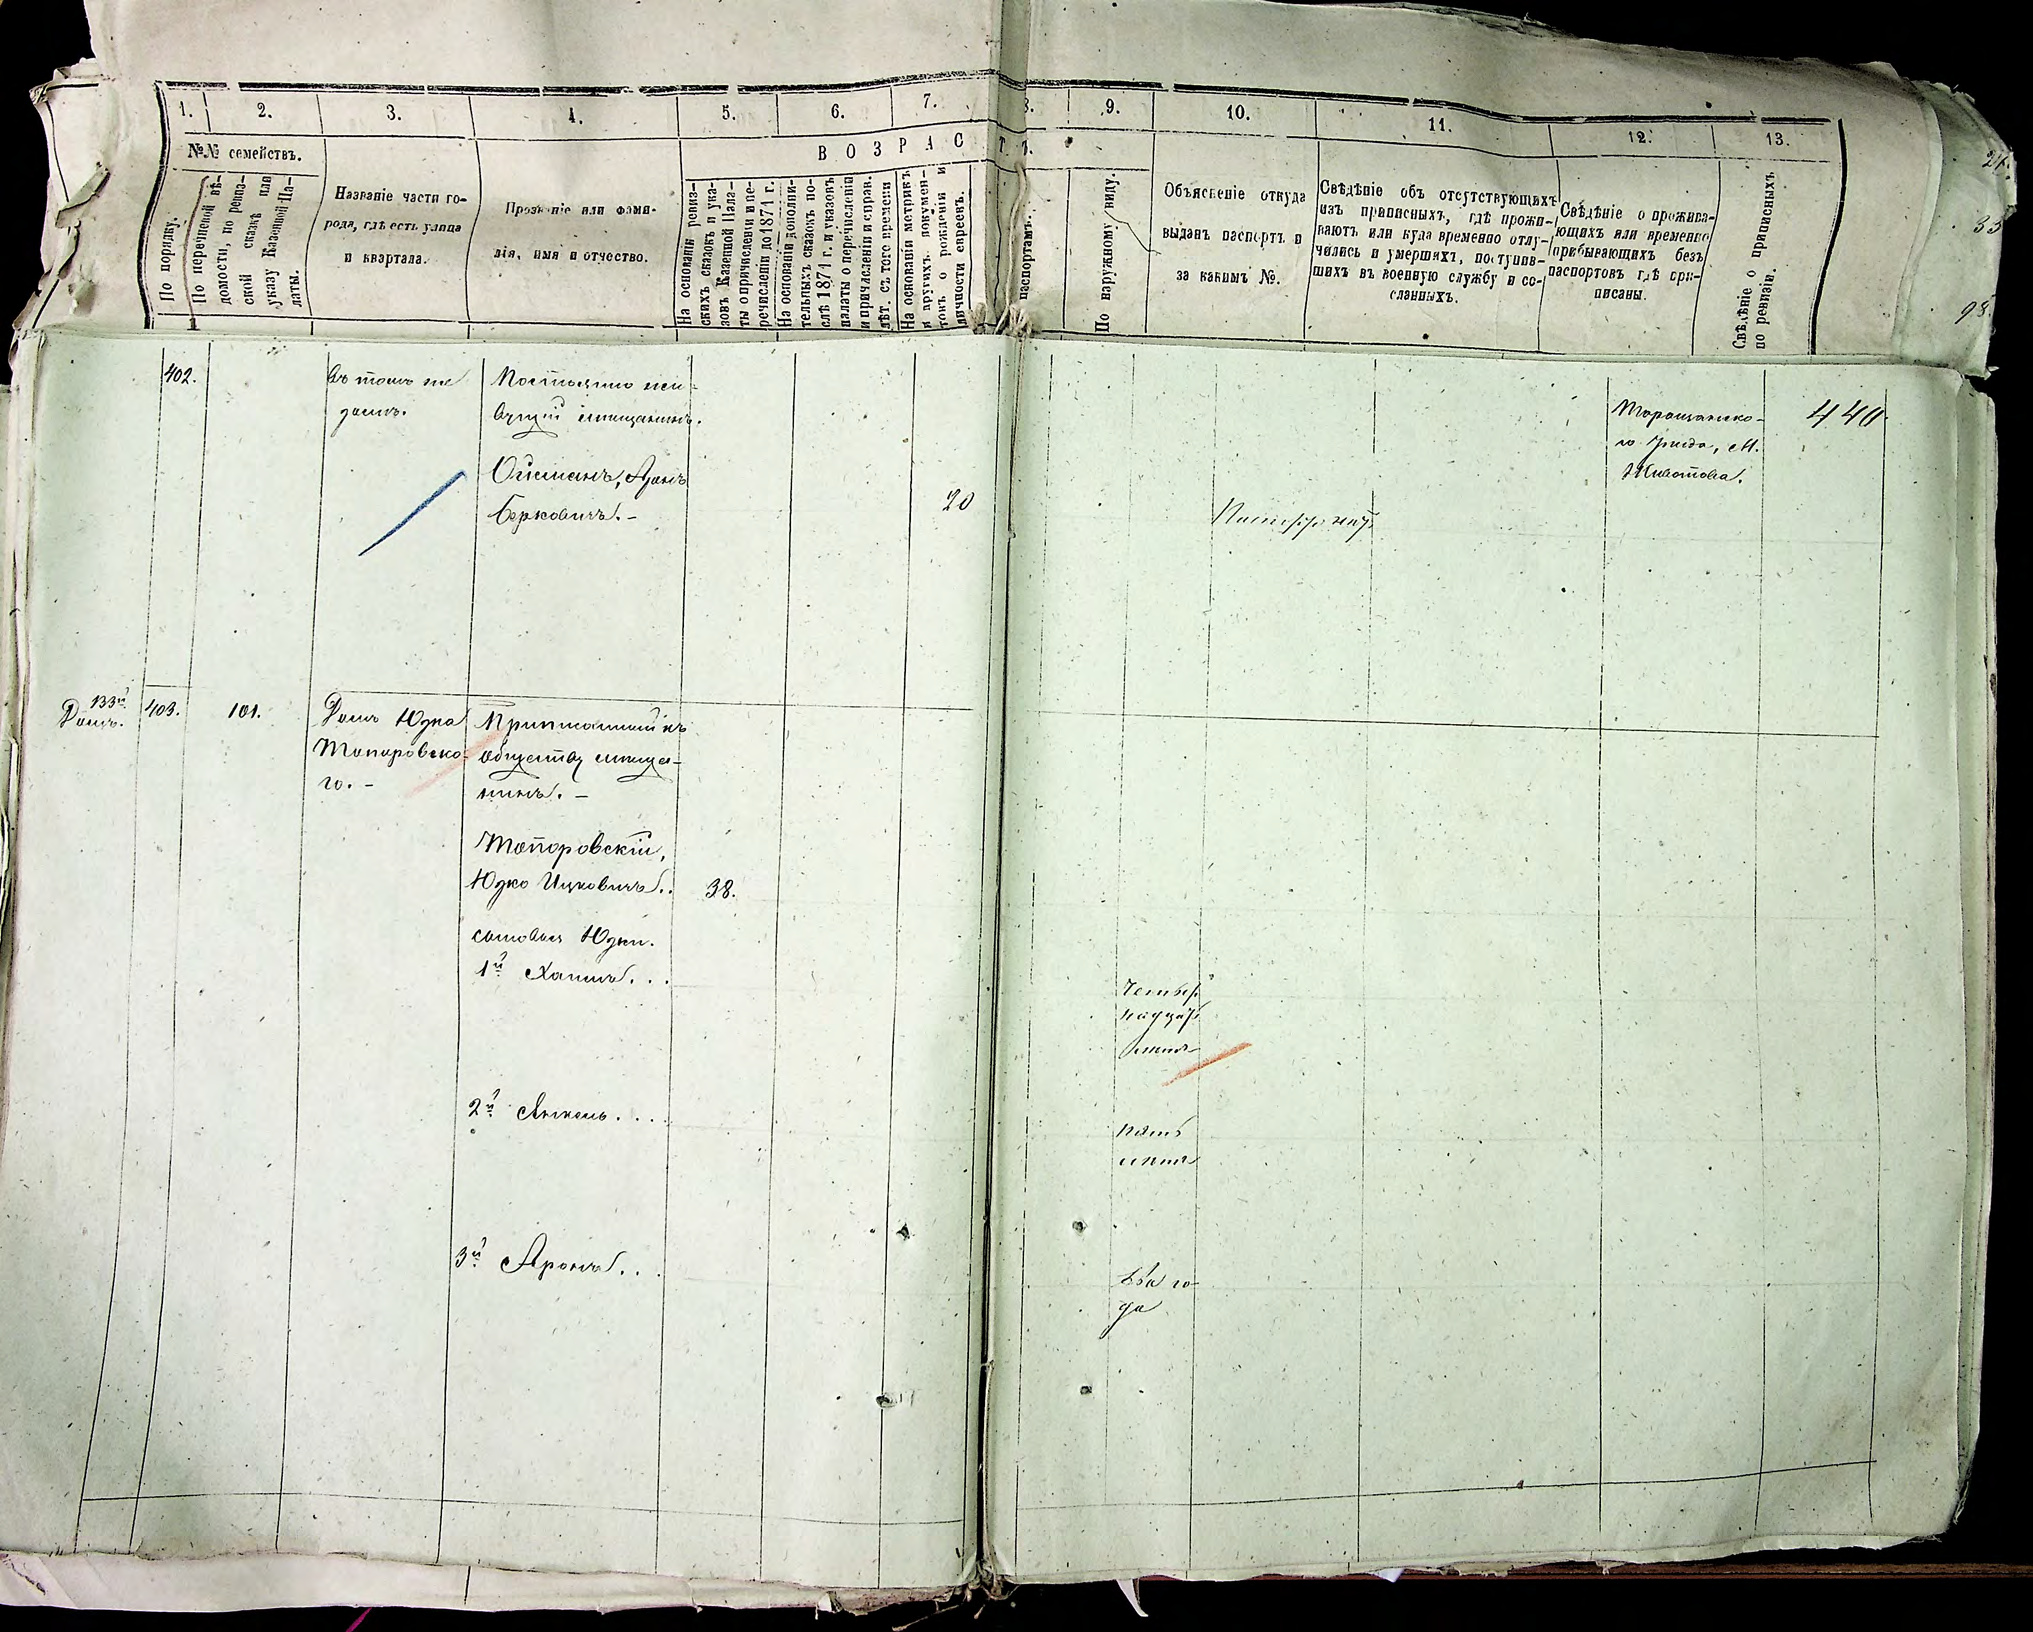 1.
2.
3.
4.
5.
6.
7.
8.
9.
10.
11.
12.
13.
№№ семействъ.
ВОЗРАСТЪ.
По порядку.
По перечневой вѣ-
домости, по ревиз-
ской сказкѣ или
указу Казенной Па-
латы.
Названіе части го-
рода, гдѣ есть улица
и квартала.
Прозваніе или фами-
лія, имя и отчество.
На основаніи ревиз-
скихъ сказокъ и ука-
зовъ Казенной Пала-
ты о причисленіи и пе-
речисленіи до 1871 г.
На основаніи дополни-
тельныхъ сказокъ по-
слѣ 1871 г. и указовъ
палаты о перечисленіи
и причисленіи и справ.
лѣт. съ того времени
На основаніи метрикъ
и другихъ докумен-
товъ о рожденіи и
личности евреевъ.
паспортамъ.
По наружному виду.
Объясненіе откуда
выданъ паспортъ и
за какимъ №.
Свѣдѣніе объ отсутствующихъ
изъ приписныхъ, гдѣ прожи-
ваютъ или куда временно отлу-
чились и умершихъ, поступив-
шихъ въ военную службу и со-
сланныхъ.
Свѣдѣніе о прожива-
ющихъ или временно
прибывающихъ безъ
паспортовъ гдѣ при-
писаны.
Свѣдѣніе о приписныхъ
по ревизіи.
402.
Въ томъ же
домѣ.
Постоянно жи-
вущій мѣщанинъ.
Ойсманъ,
Берковичъ. –
20
Таращанска-
го уѣзда, М.
Животова.
440.
133й
Домъ.
403.
101.
Домъ Юдка
Топоровско-
го. –
Приписанный къ
обществу мѣща-
нинъ. –
Топоровскій,
Юдко Ицковичъ..
38.
сыновья Юдки.
1й Хаимъ...
Четыр-
надцать
лѣтъ
2й Янкель....
пять
лѣтъ
3й Аронъ...
два го-
да